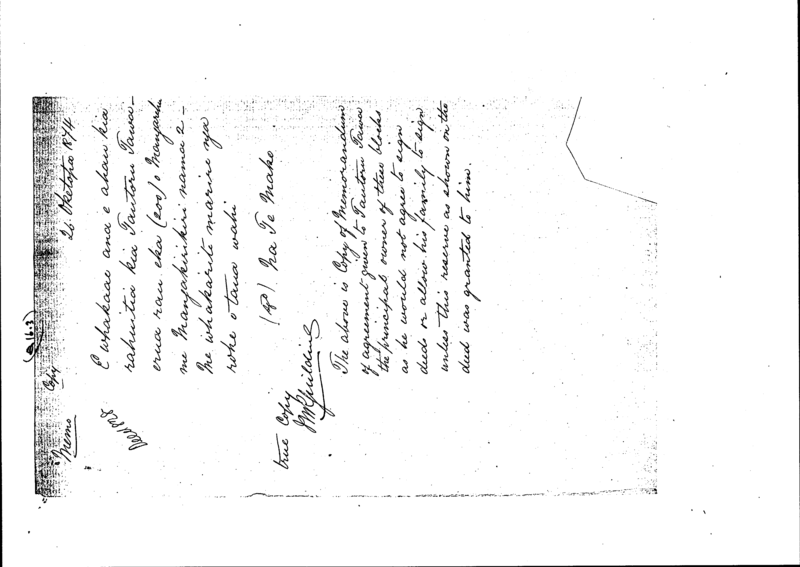 (a 16.3)
Copy
Memo
26 Oketopa 1874
E whakaae ana e ahau kia
rahuitia kia Tautoru Tawa-
erua rau eka (200) o Mangarahu
me Mangakirikiri nama 2 -
Me whakarite mariri nga
rohe o taua wahi
Na Te Mako
true Copy
The above is Copy of Memorandum
of agreement given to Tautoru Tawa
the principal owner of these blocks
as he would not agree to sign
deeds or allow his family to sign
unless this reserve as shown on the
deed was granted to him.